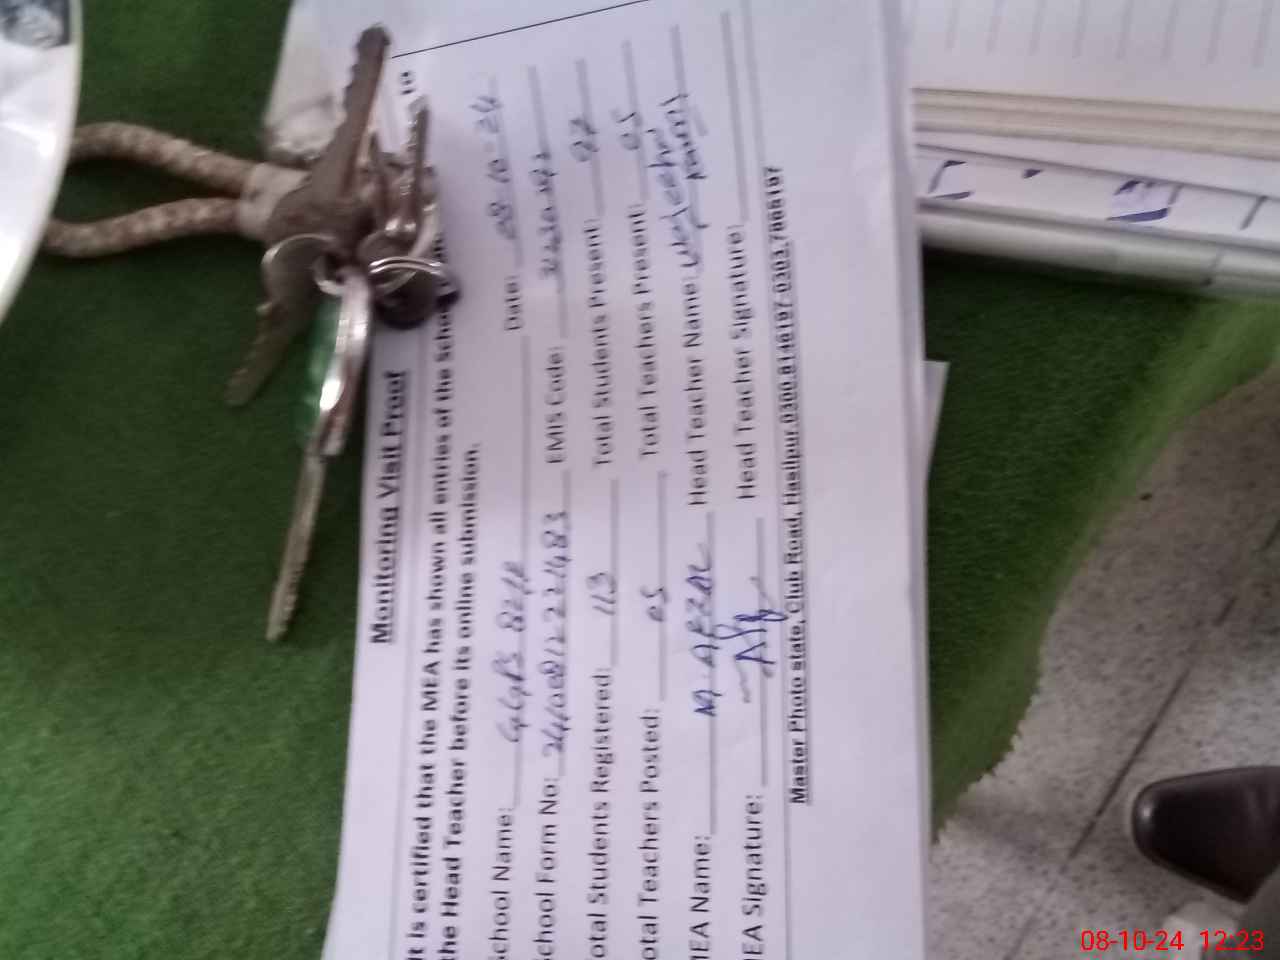 Monitoring Visit Proof
It is certified that the MEA has shown all entries of the School to
the Head Teacher before its online submission.
School Name: GGPS 84/F Date: 08-10-24
School Form No: EMIS Code:
Total Students Registered: 113 Total Students Present: 97
Total Teachers Posted: 05 Total Teachers Present: 05
MEA Name: M. AFZAL Head Teacher Name:
MEA Signature: Head Teacher Signature:
Master Photo state, Club Road, Hasilpur 0300.8146197-0303.7866197
08-10-24 12:23